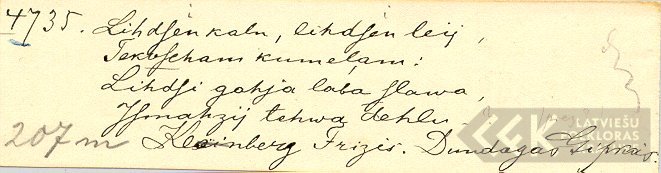 4735. Lihdsen kaln, lihdsen leij,
Tekoscham kumeļam:
Lihdsi gahja laba slawa,
Ismahzij tehwa dehlu.
207 m Kleinberg Frizis. Dundagas Gipkās.
LATVIEŠU
FOLKLORAS